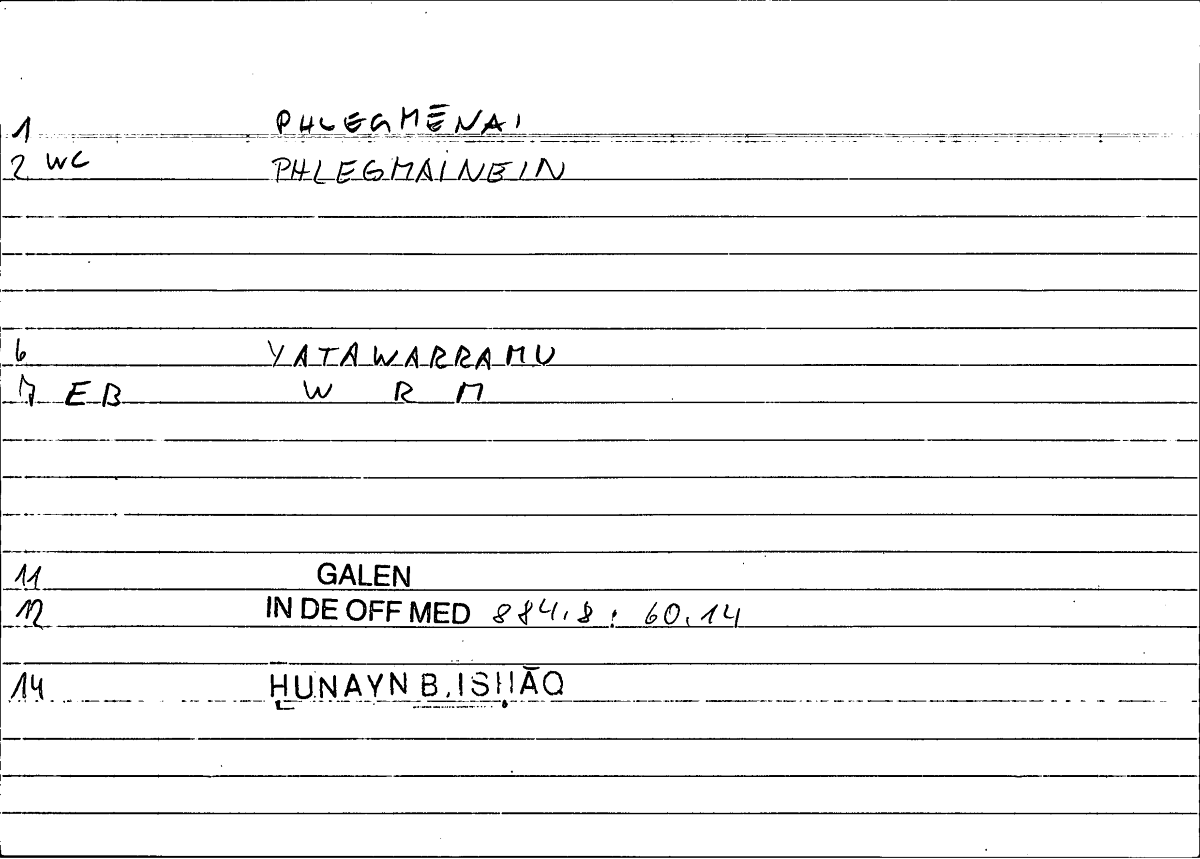 1 PHLEGMĒNAI
2 WC PHLEGMAINEIN
6 YATAWARRAMU
7 EB W R M
11 GALEN
12 IN DE OFF MED 884.8 : 60.14
14 ḪUNAYN B. ISḤĀQ